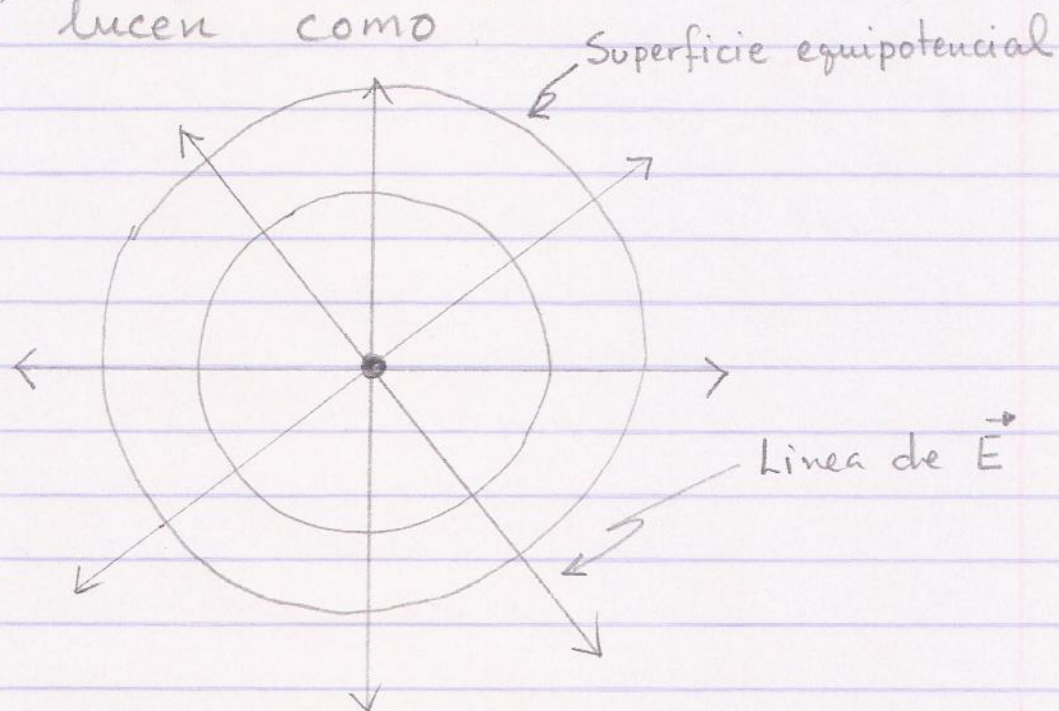 lucen como
Superficie equipotencial
Linea de E⃗